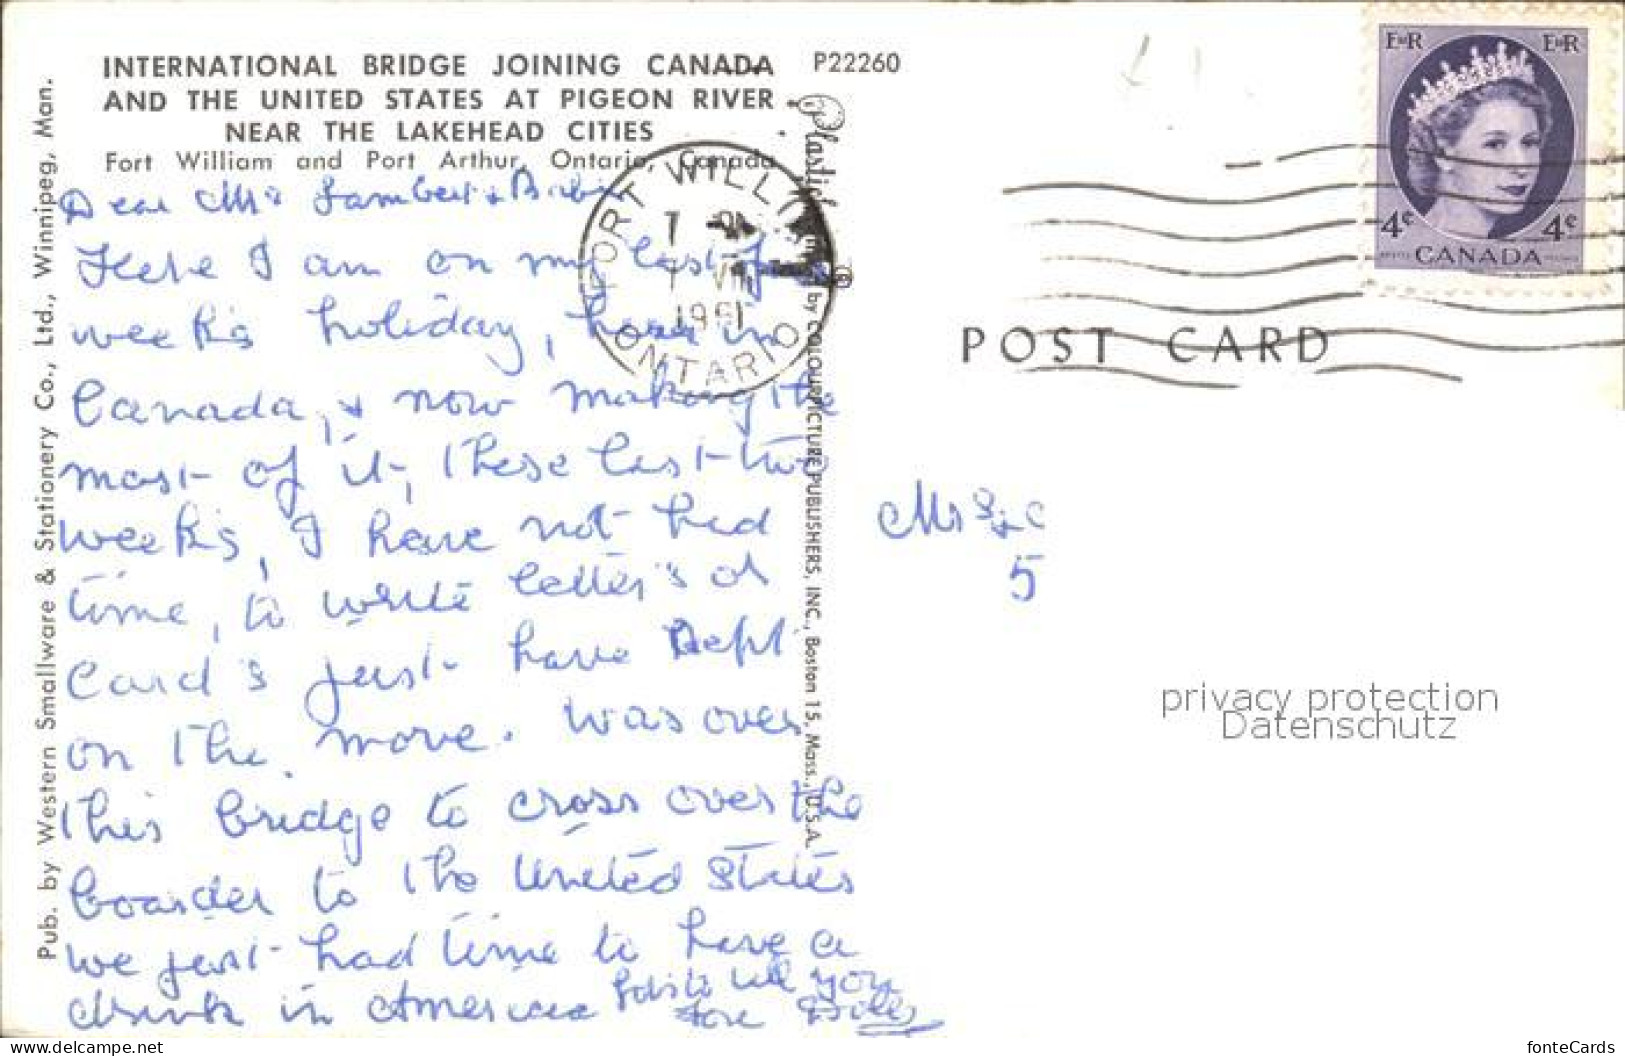 INTERNATIONAL BRIDGE JOINING CANADA
AND THE UNITED STATES AT PIGEON RIVER
NEAR THE LAKEHEAD CITIES
Fort William and Port Arthur, Ontario, Canada
P22260
Pub. by Western Smallware & Stationery Co., Ltd., Winnipeg, Man.
Dear Mrs Lambert &
Here I am on my last few
weeks holiday, here in
Canada, & now making the
most of it, these last two
weeks, I have not had
time, to write letter's or
Card's just have kept
on the move. Was over
this bridge to cross over the
boarder to the United States
we just had time to have a
drink in America
to tell you
love
FORT WILLIAM
1961
ONTARIO
Plastichrome ® by COLOURPICTURE PUBLISHERS, INC., Boston 15, Mass., U.S.A.
E II R E II R
4¢ 4¢
CANADA
POST CARD
Mrs
5
privacy protection
Datenschutz
https://www.ansichtskarten-center.de/
fonteCards